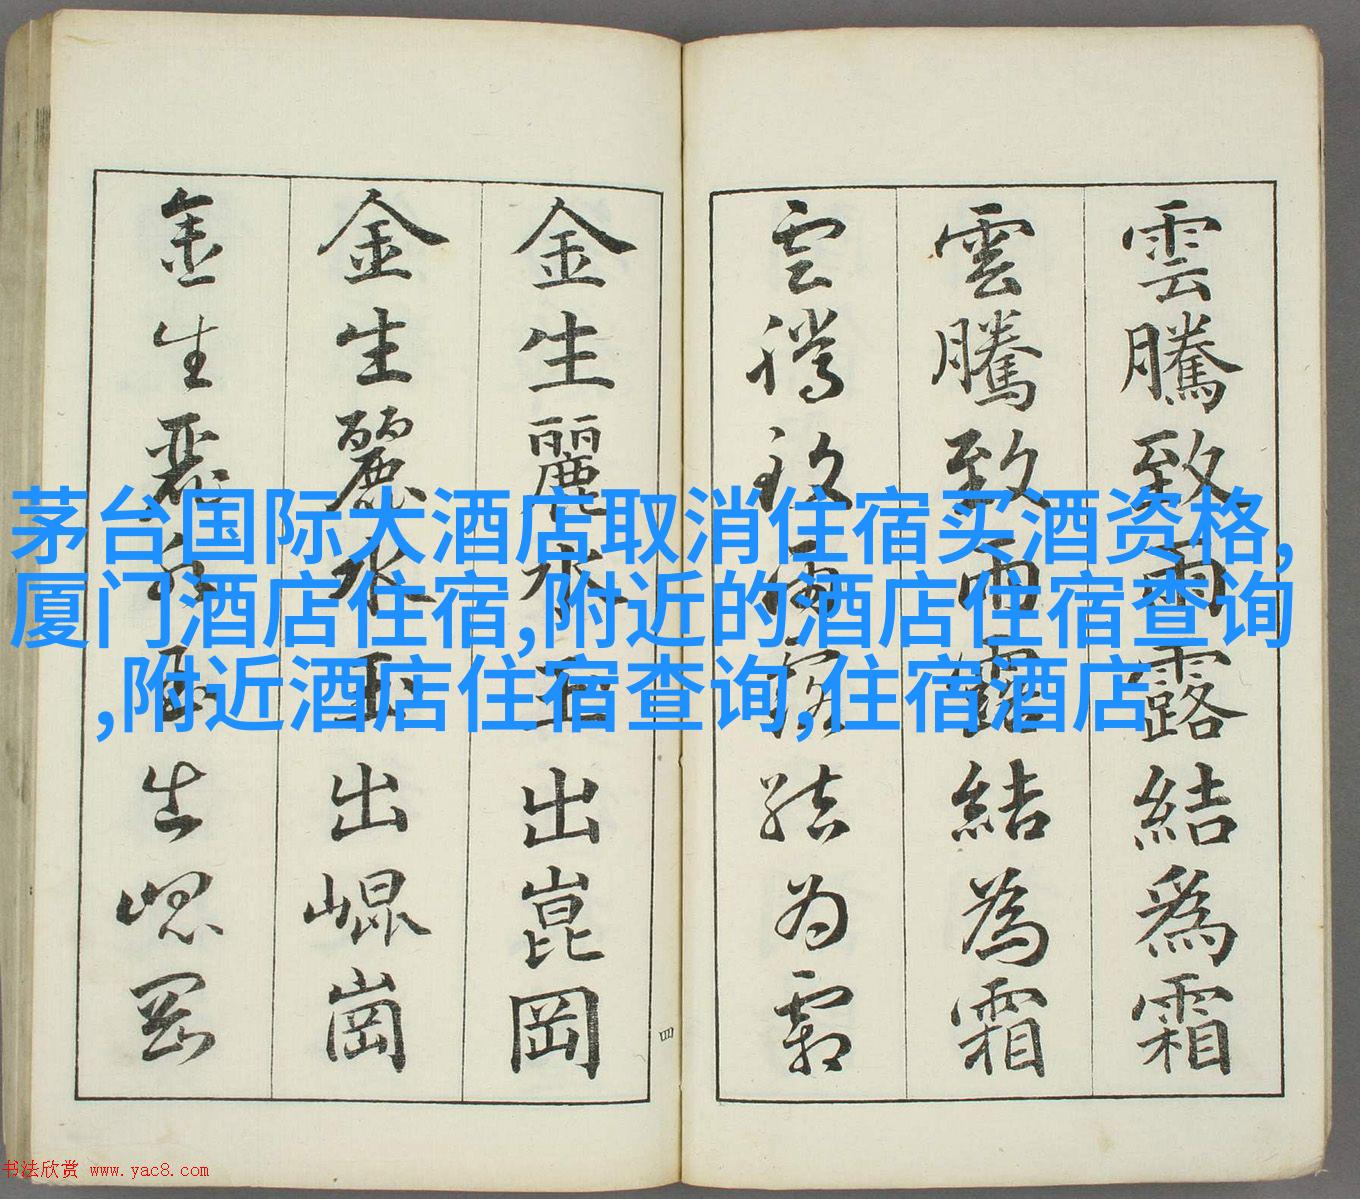 雲騰致雨露結為霜
雲騰致雨露結為霜
雲騰致雨露結为霜
金生麗水玉出崑岡
金生麗水玉出崐崗
金生麗水玉出崐岡
四
茅台国际大酒店取消住宿买酒资格,
厦门酒店住宿,附近的酒店住宿查询
,附近酒店住宿查询,住宿酒店
书法欣赏 www.yac8.com